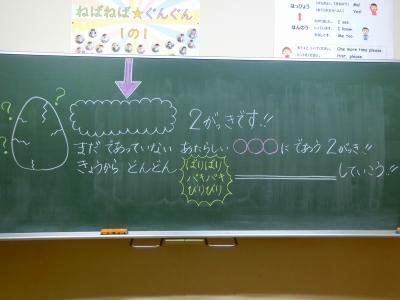 ねばねば☆ぐんぐん
1の1
はっぴょう
はんのう
Me!
Yes!
I see.
I know.
Me too.
One more time please.
? ? ?
2がっきです!!
まだ であっていない あたらしい ○○○に であう 2がっき!!
きょうから どんどん ばりばり パキパキ びりびり していこう!!